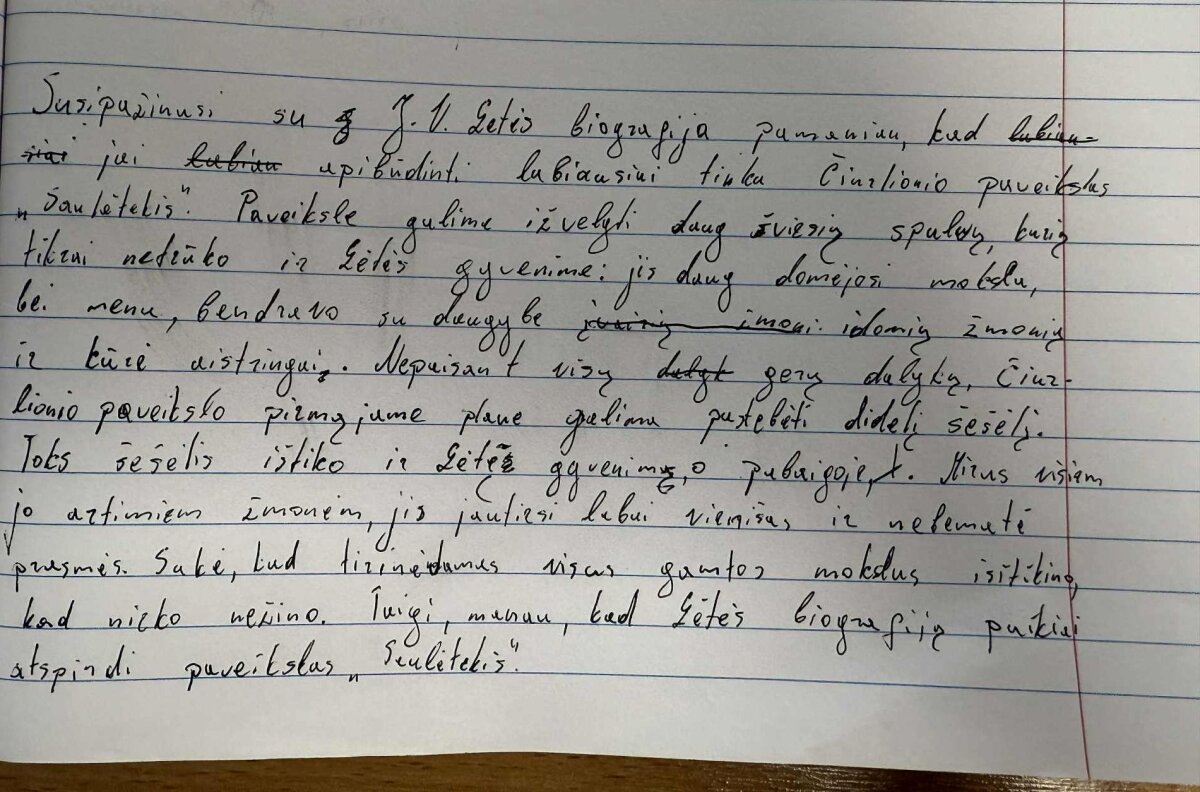 Susipažinusi su J. V. Gėtės biografija pamaniau, kad labiau-
siai jai labiau apibūdinti labiausiai tinka Čiurlionio paveikslas
„Saulėtekis". Paveiksle galime įžvelgti daug šviesių spalvų, kurių
tikrai netrūko ir Gėtės gyvenime: jis daug domėjosi mokslu,
bei menu, bendravo su daugybe įvairių žmoni. idomių žmonių
ir kūrė aistringai. Nepaisant visų dalyk gerų dalykų, Čiur-
lionio paveikslo pirmąjame plane galima pastebėti didelį šešėlį.
Toks šešėlis ištiko ir Gėtę gyvenimo pabaigoje. Mirus visiem
jo artimiem žmonėm, jis jautėsi labai vienišas ir nebematė
prasmės. Sakė, kad tirinėdamas visus gamtos mokslus įsitikino,
kad nieko nežino. Taigi, manau, kad Gėtės biografiją puikiai
atspindi paveikslas „Saulėtekis".